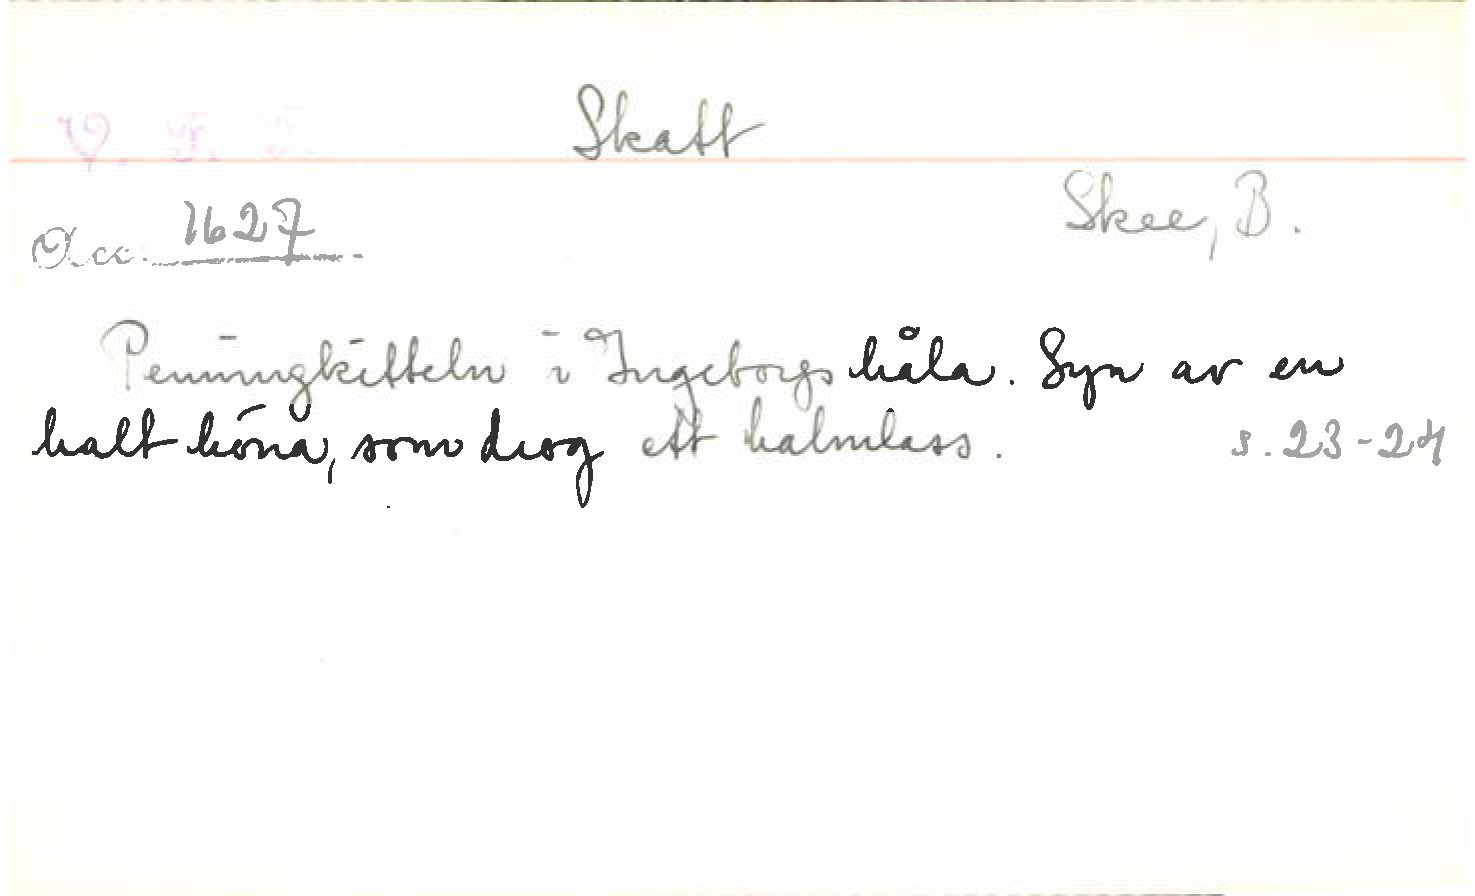 V. F. F.
Skatt
Skee, B.
Acc. 1627
Penningkitteln i Ingeborgs håla. Syn av en
halt höna, som drog ett halmlass. s. 23-24